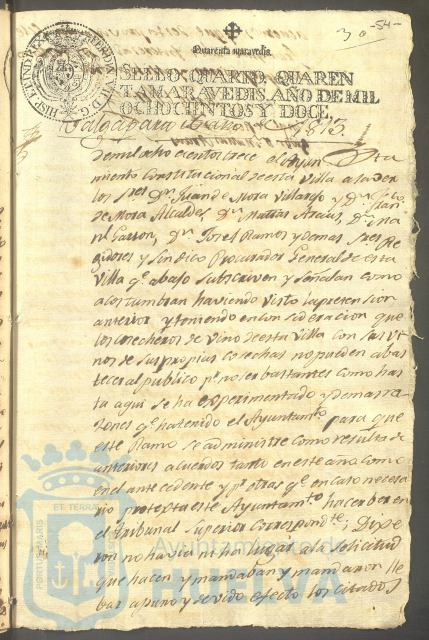 54
30
Quarenta maravedis.
HISP. ET IND. REX FERDIN. VII D. G.
SELLO QUARTO, QUAREN
TA MARAVEDIS, AÑO DE MIL
OCHOCIENTOS Y DOCE.
Valga para el año de 1813.
de mil ocho cientos trece el Ayunta
miento Constitucional de esta Villa a saver
los Sres Dn Juan de Mora Villarejo y Dn
de Mora Alcaldes, Dn Matias Dn
Garzon, Dn Josef Ramos y Demas Sres Re
gidores y Sindico Procurador General de esta
Villa qe abajo subscriven y señalan como
acostumbran haviendo visto la pretension
anterior y teniendo en consideracion que
los cosecheros de vino de esta Villa con sus vi
nos de sus propias cosechas no pueden abas
tecer al publico pr no ser bastantes como has
ta aqui se ha experimentado y demas ra
zones qe ha tenido el Ayuntamto para que
este Ramo se administre como resulta de
anteriores acuerdos tanto en este año como
en el antecedente y pr otras qe en caso necesa
rio protexta este Ayuntamto hacer ver en
el tribunal Superior Correspondte; Dixe
ron no havia ni ha lugar a la solicitud
que hacen y mandaban y mandaron lle
bar a puro y devido efecto los citados
ET TERRA
PORTUS MARIS
Ayuntamiento de
HUELVA